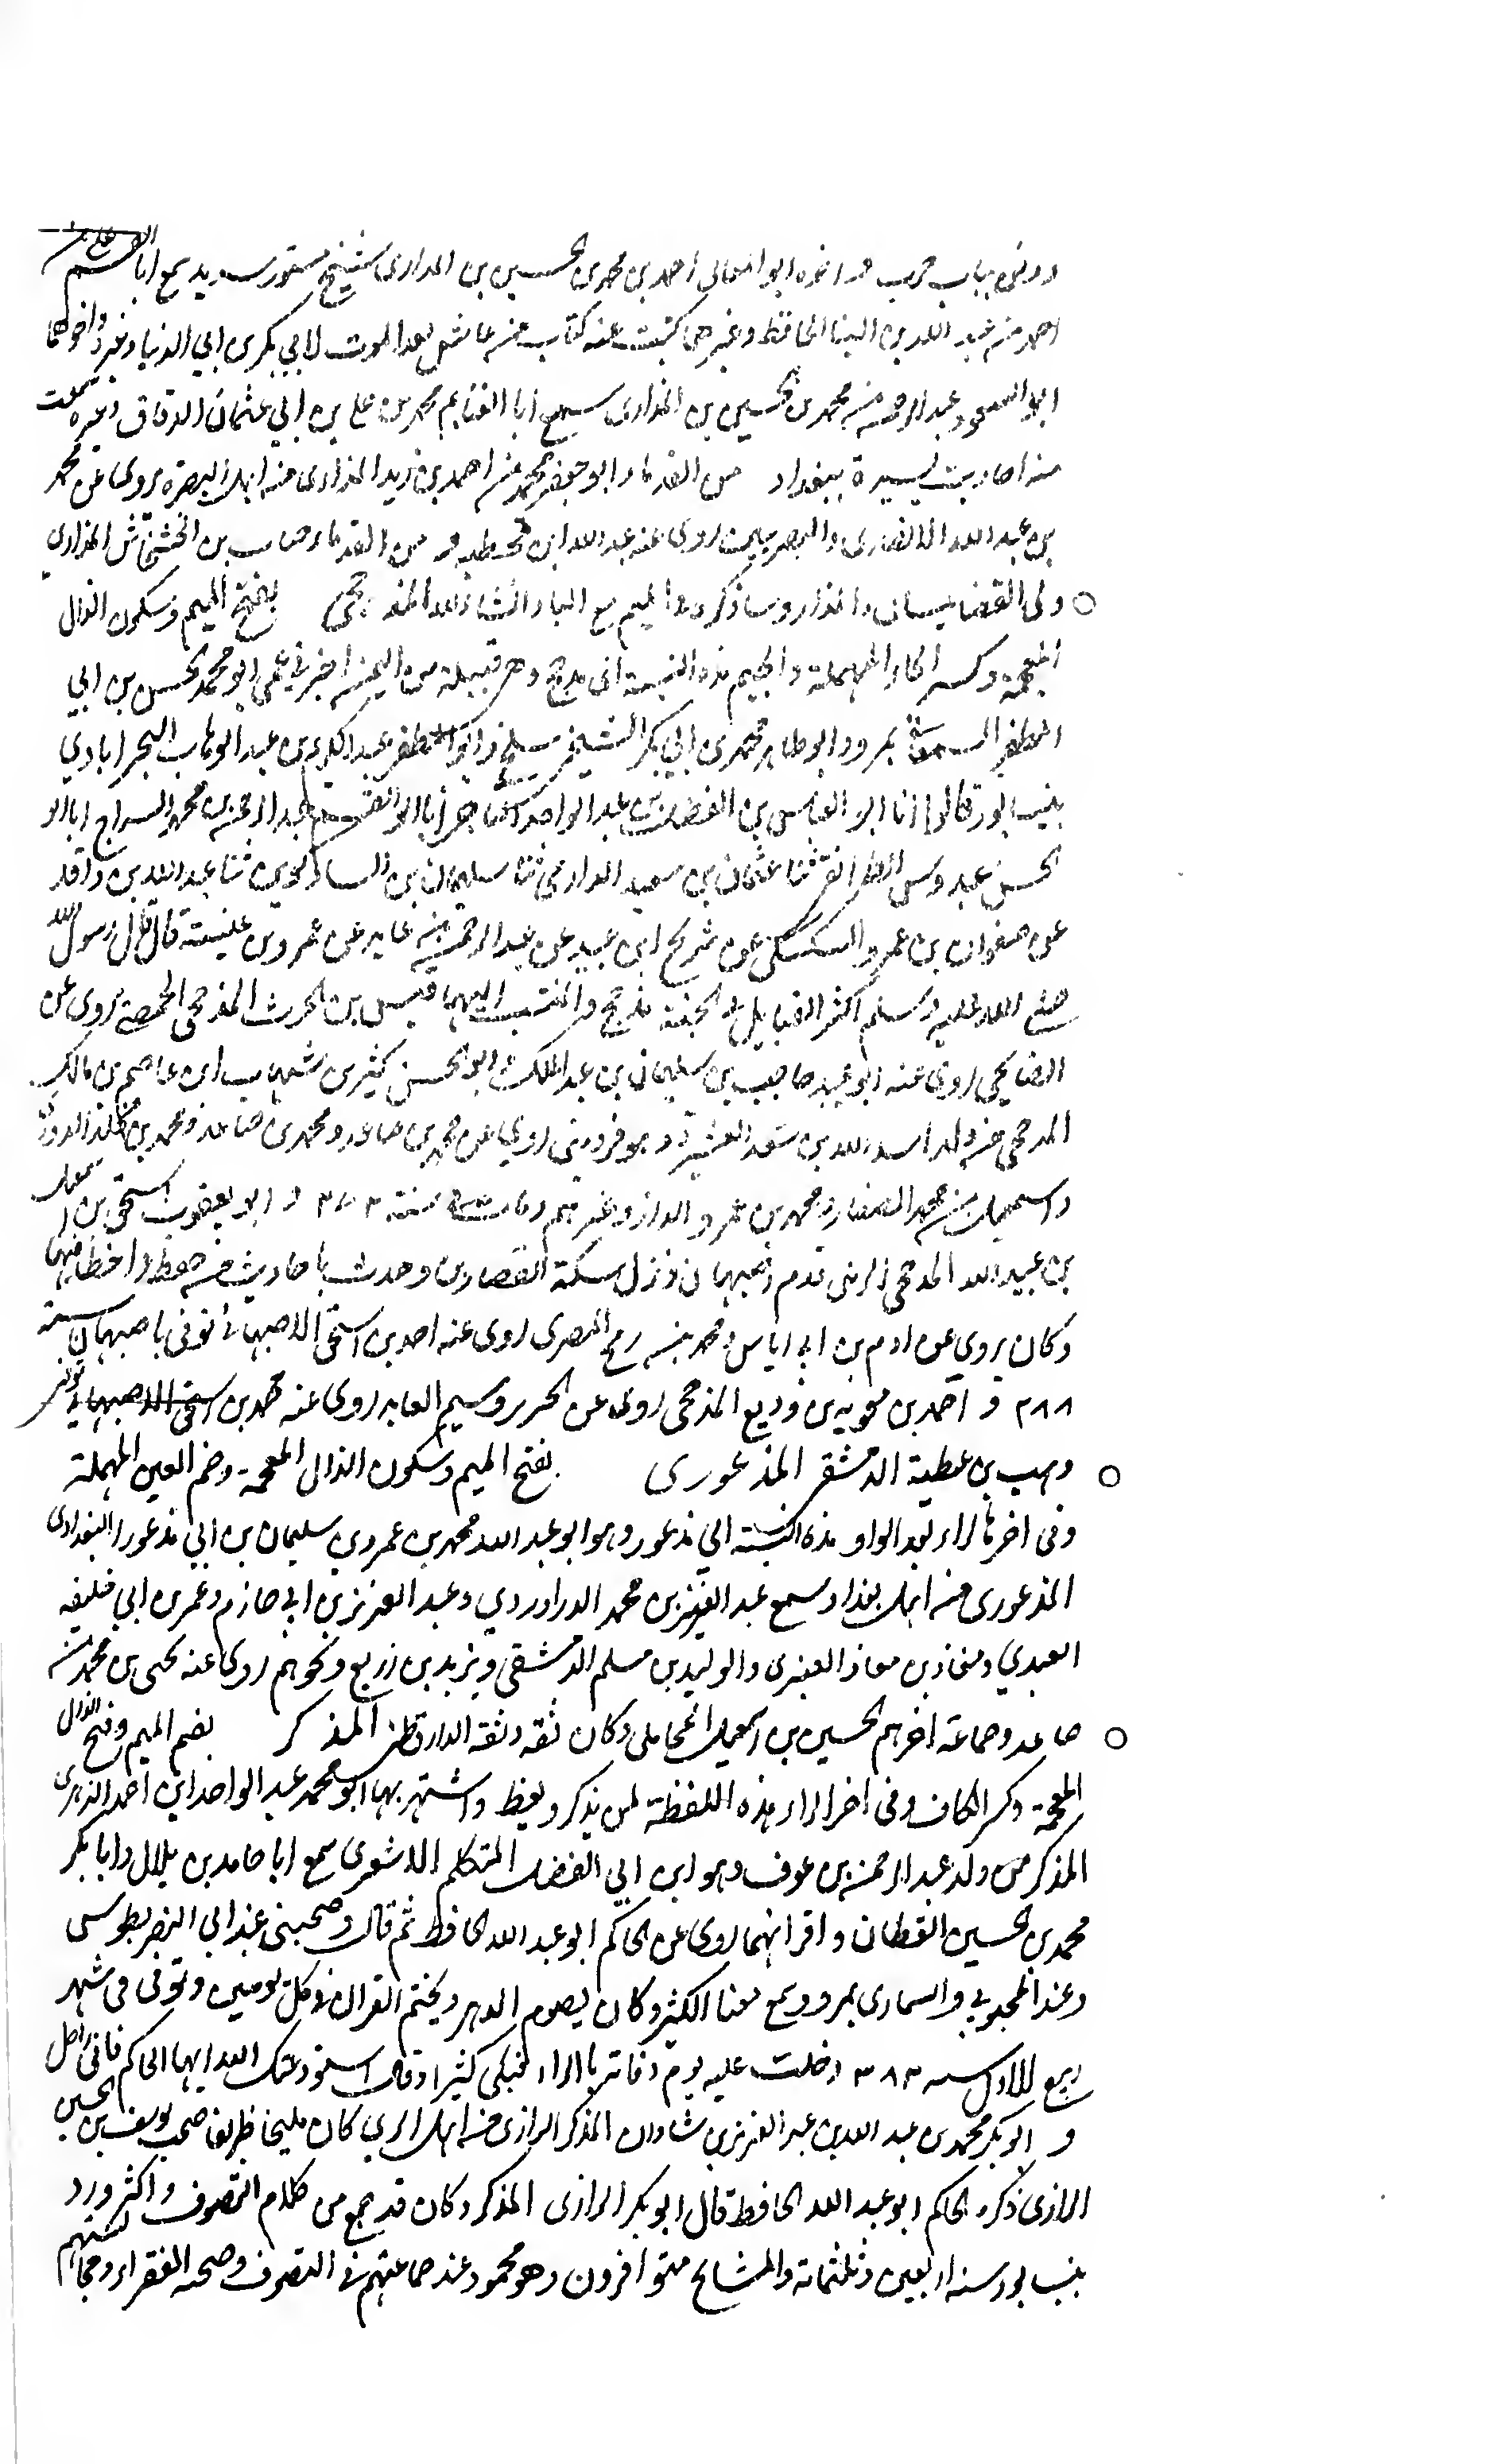 ودفن بباب حرب و اخوه ابو المعالى احمد بن محمد بن الحسين بن المذارى شيخ مستور سديد سمع ابا القسم على بن
احمد بن عبد الله بن البنا الحافظ وغيرهما كتبت عنه كتاب من عاش بعد الموت لابي بكر بن ابي الدنيا وغيره واخوهما
ابو السعود عبد الرحمن بن محمد بن الحسين بن المذارى سمع ابا الغنايم محمد بن على بن ابي عثمان الدقاق وغيره سمعت
منه احاديث يسيرة ببغداد من القدماء ابو جعفر محمد بن احمد بن زيد المذارى من اهل البصرة يروى عن محمد
بن عبد الله الانصارى والبصريين روى عنه عبد الله ابن قحطبه و من القدماء حصاب بن الخشخاش المذارى
ولى القضا بميسان والمذار وساذكره فى الميم مع الياء ان شاء الله المذحجى بفتح الميم وسكون الذال
المعجمة وكسر الحاء المهملة والجيم هذه النسبة الى مذحج وهى قبيلة من اليمن اخبرنى عمى ابو محمد الحسن بن ابي
المظفر السمعانى بمرو و ابو طاهر محمد بن ابي بكر الشيخ بسلخ و ابو المظفر عبد الكريم بن عبد الوهاب البحرابادي
بنيسابور قالوا انا ابو العباس بن الفضل بن عبد الواحد التاجر انا ابو القسم عبد الرحمن بن محمد السراج انا ابو
الحسن عبدوس الطرائفى ثنا عثمان بن سعيد الدارمى ثنا سليمان بن ثنا عبد الله بن واقد
عن صفوان بن عمرو السكسكى عن شريح ابن عبيد عن عبد الرحمن بن عايد عن عمرو بن عنبسة قال قال رسول الله
صلى الله عليه وسلم اكثر القبايل فى الجنة مذحج والمنتسب اليها قيس بن الحرث المذحجى الحمصى يروى عن
الصنابحى روى عنه ابو عبيد حاجب بن سليمان بن عبد الملك و ابو الحسن كثير بن شهاب ابن عاصم بن مالك
المذحجى من ولد اسد الله بن سعد العشيرة وهو قزوينى روى عن محمد بن صاعد و محمد بن مخلد الدورى
واسمعيل بن محمد الصفار و محمد بن عمرو الرزاز وغيرهم ومات سنة ٣٧٣ و ابو يعقوب اسحق بن اسمعيل
بن عبيد الله المذحجى الرملى قدم اصبهان ونزل سكة القصارين وحدث باحاديث من حفظه واخطا فيها
وكان يروى عن ادم بن ابى اياس و محمد بن رمح المصرى روى عنه احمد بن اسحق الاصبهانى توفى باصبهان سنة
٢٨٨ و احمد بن محويه بن وديع المذحجى روى عن الحر بن وسيم العابد روى عنه محمد بن
وهب بن عطية الدمشقى المذعورى بفتح الميم وسكون الذال المعجمة وضم العين المهملة
وفى اخرها الراء بعد الواو هذه النسبة الى مذعور وهو ابو عبد الله محمد بن عمرو بن سليمان بن ابي مذعور البغدادى
المذعورى من اهل بغداد سمع عبد العزيز بن محمد الدراوردي وعبد العزيز بن ابى حازم وعمر بن ابي خليفه
العبدي ومعاذ بن معاذ العنبرى والوليد بن مسلم الدمشقى ويزيد بن زريع ونحوهم روى عنه يحيى بن محمد بن
صاعد وجماعة اخرهم الحسين بن اسمعيل المحاملى وكان ثقه وثقه الدارقطنى المذكر بضم الميم وفتح الذال
المعجمة وكسر الكاف وفى اخر الراء هذه اللفظة لمن يذكر ويعظ واشتهر بها ابو محمد عبد الواحد ابن احمد الزهرى
المذكر من ولد عبد الرحمن بن عوف وهو ابن ابي الفضل المتكلم الاشعرى سمع ابا حامد بن بلال وابا بكر
محمد بن الحسين القطان واقرانهما روى عن الحاكم ابو عبد الله الحافظ ثم قال وصحبنى عند ابي النضر بطوس
وعند المحبوبي والسيارى بمرو وسمع معنا الكثير وكان يصوم الدهر ويختم القران فى كل يومين وتوفى فى شهر
ربيع الاول سنه ٣٨٣ دخلت عليه يوم وفاته بكى كثيرا وقال استودعتك الله ايها الحاكم فانى راحل
و ابو بكر محمد بن عبد الله بن عبد العزيز بن شاذان المذكر الرازى من اهل الري كان مليحا ظريفا صحب يوسف بن الحسين
الرازى ذكره الحاكم ابو عبد الله الحافظ قال ابو بكر الرازى المذكر وكان قد جمع من كلام التصوف واكثر ورد
بنيسابور سنه اربعين وثلثمائة والمشايخ متوافرون وهو محمود عند جماعتهم فى التصوف وصحبه الفقراء ومجالستهم